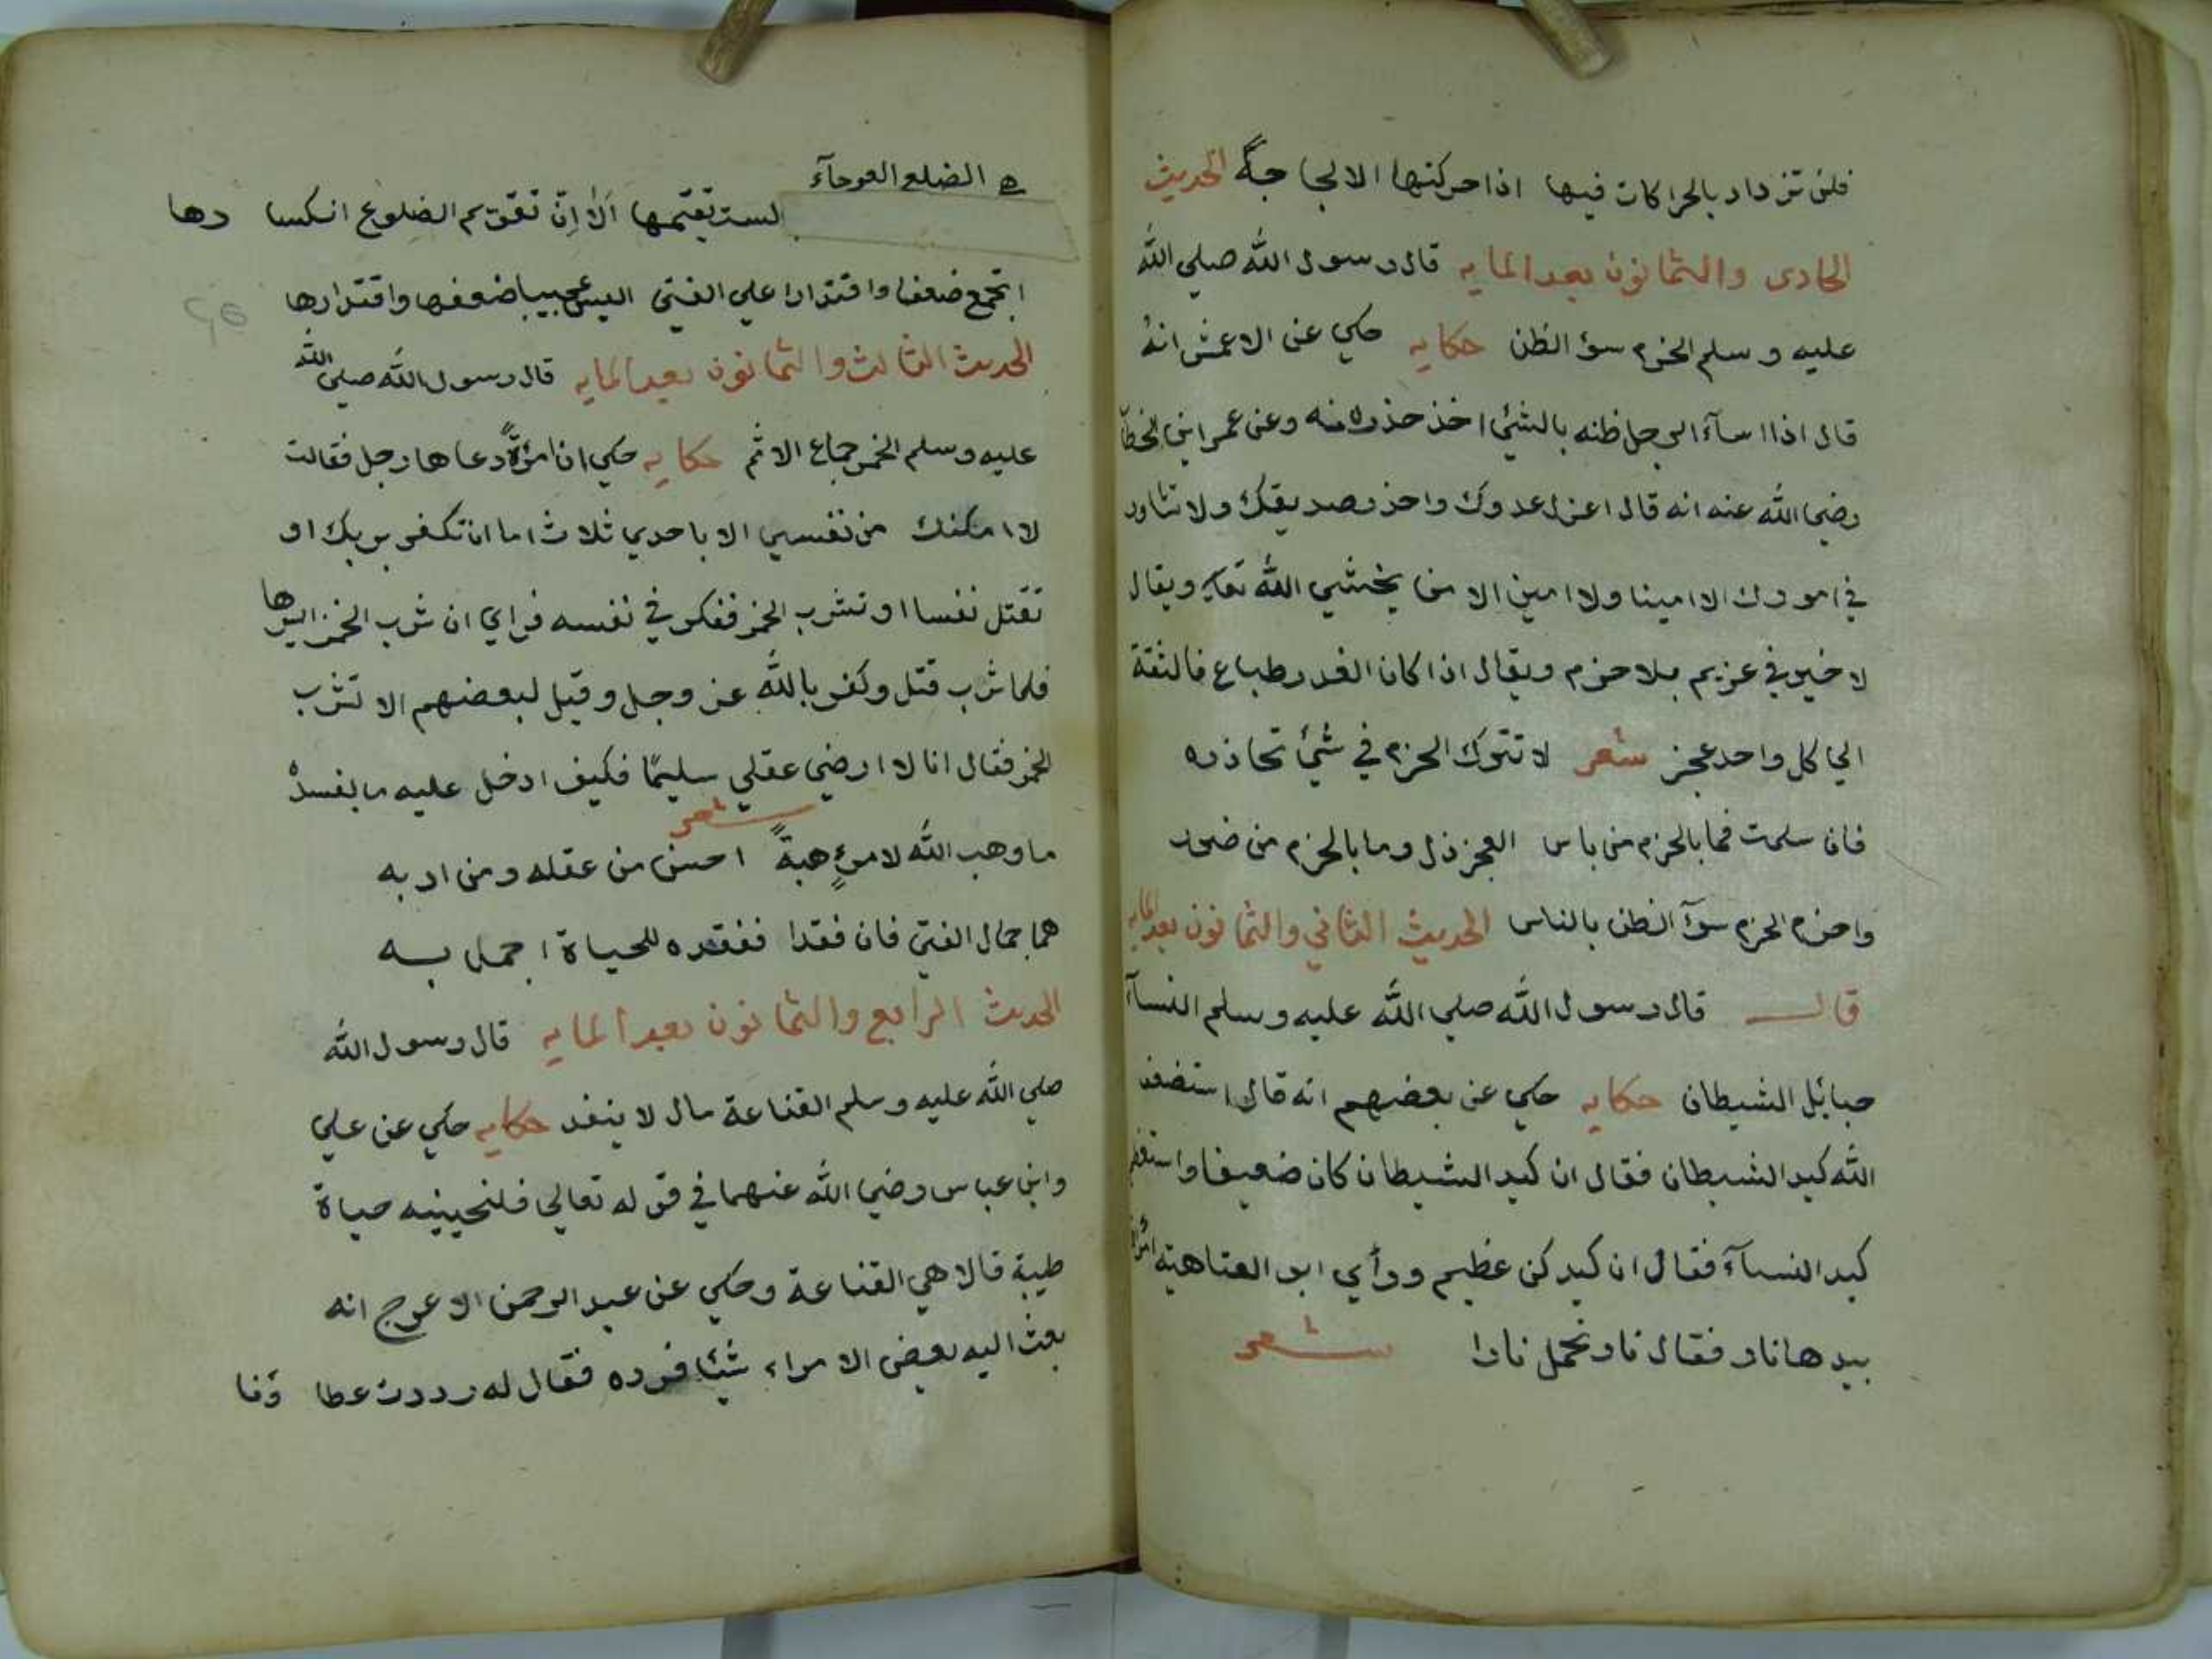 فلن تزداد بالحراكات فيها اذا حركتها الا لجاجةً الحديث
الحادى والثمانون بعد المايه قال رسول الله صلي الله
عليه وسلم الحزم سؤ الظن حكايه حكي عن الاعمش انهُ
قال اذا اسآء الرجل ظنه بالشئ اخذ حذره منه وعن عمر ابن الخطاب
رضي الله عنه انه قال اعزل عدوك واحذر صديقك ولا تشاور
في امورك الا امينا ولا امين الا من يخشي الله تعالي ويقال
لا خير في عزيم بلا حزم ويقال اذا كان الغدر طباع فالثقة
الي كل واحد عجز شعر لا تترك الحزم في شئ تحاذره
فان سلمت فما بالحزم من باس العجز ذل وما بالحزم من ضرر
واحزم الحزم سوٓ الظن بالناس الحديث الثاني والثمانون بعد المايه
قال قال رسول الله صلي الله عليه وسلم النسآء
حبائل الشيطان حكايه حكي عن بعضهم انه قال استضعف
الله كيد الشيطان فقال ان كيد الشيطان كان ضعيفا واستعظم
كيد النسآء فقال ان كيدكن عظيم ورأي ابو العتاهية امرأة
بيدها نار فقال نار تحمل نارا شعر
ه الضلع العوجآء
لست تقيمها ألا إنّ تقويم الضلوع انكسا رها
اتجمع ضعفا واقتدارا علي الفتي اليس عجيبا ضعفها واقتدارها
الحديث الثالث والثمانون بعد المايه قال رسول الله صلي الله
عليه وسلم الخمر جماع الاثم حكايه حكي ان امرؤةً دعاها رجل فقالت
لا امكنك من نفسي الا باحدي ثلاث اما ان تكفر بربك او
تقتل نفسا او تشرب الخمر ففكر في نفسه فراي ان شرب الخمر ايسرها
فلما شرب قتل وكفر بالله عز وجل وقيل لبعضهم الا تشرب
الخمر فقال انا لا ارضي عقلي سليمًا فكيف ادخل عليه ما يفسدهُ
شعر
ما وهب الله لامرئٍ هبةً احسن من عقله ومن ادبه
هما جمال الفتي فان فقدا ففقده للحياة اجمل به
الحديث الرابع والثمانون بعد المايه قال رسول الله
صلي الله عليه وسلم القناعة مال لا ينفد حكايه حكي عن علي
وابن عباس رضي الله عنهما في قوله تعالي فلنحيينه حياة
طيبة قالا هي القناعة وحكي عن عبد الرحمن الاعرج انه
بعث اليه بعض الامراء شيئا فرده فقال له رددت عطا ؤنا